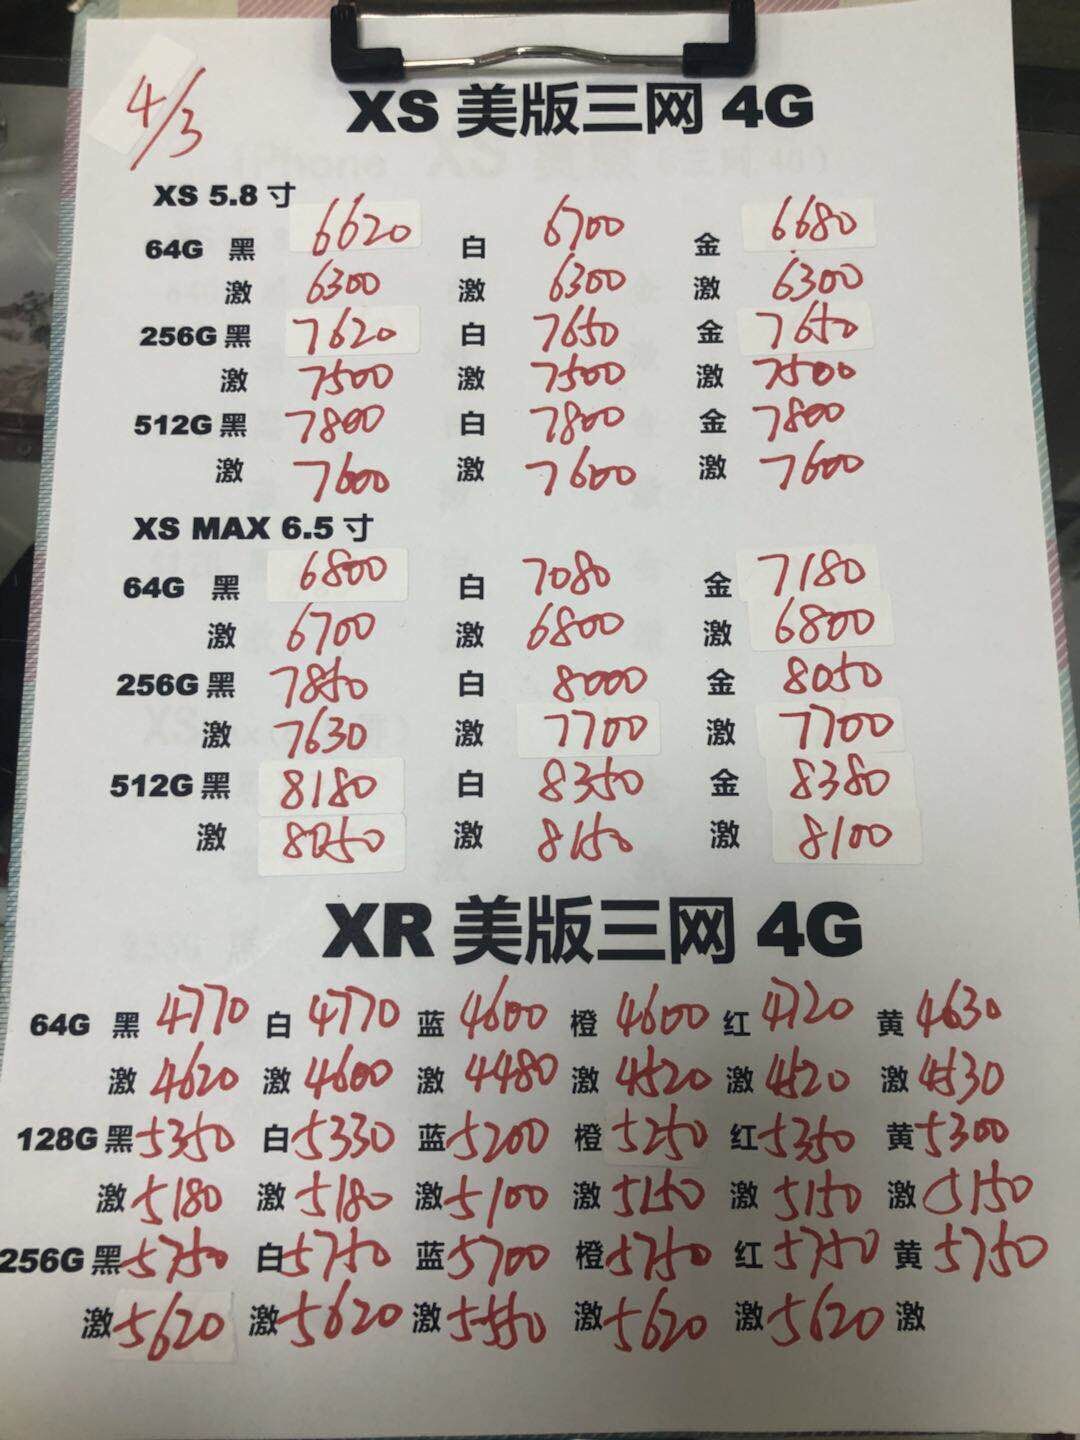 4/3
XS 美版三网 4G
XS 5.8 寸
64G 黑 6620 白 6700 金 6680
激 6300 激 6300 激 6300
256G 黑 7620 白 7650 金 7650
激 7500 激 7500 激 7500
512G 黑 7800 白 7800 金 7800
激 7600 激 7600 激 7600
XS MAX 6.5 寸
64G 黑 6800 白 7080 金 7180
激 6700 激 6800 激 6800
256G 黑 7850 白 8000 金 8050
激 7630 激 7700 激 7700
512G 黑 8180 白 8350 金 8380
激 8050 激 8150 激 8100
XR 美版三网 4G
64G 黑 4770 白 4770 蓝 4600 橙 4600 红 4720 黄 4630
激 4620 激 4600 激 4480 激 4520 激 4520 激 4530
128G 黑 5350 白 5330 蓝 5200 橙 5250 红 5350 黄 5300
激 5180 激 5180 激 5100 激 5150 激 5150 激 5150
256G 黑 5750 白 5750 蓝 5700 橙 5750 红 5750 黄 5750
激 5620 激 5620 激 5550 激 5620 激 5620 激